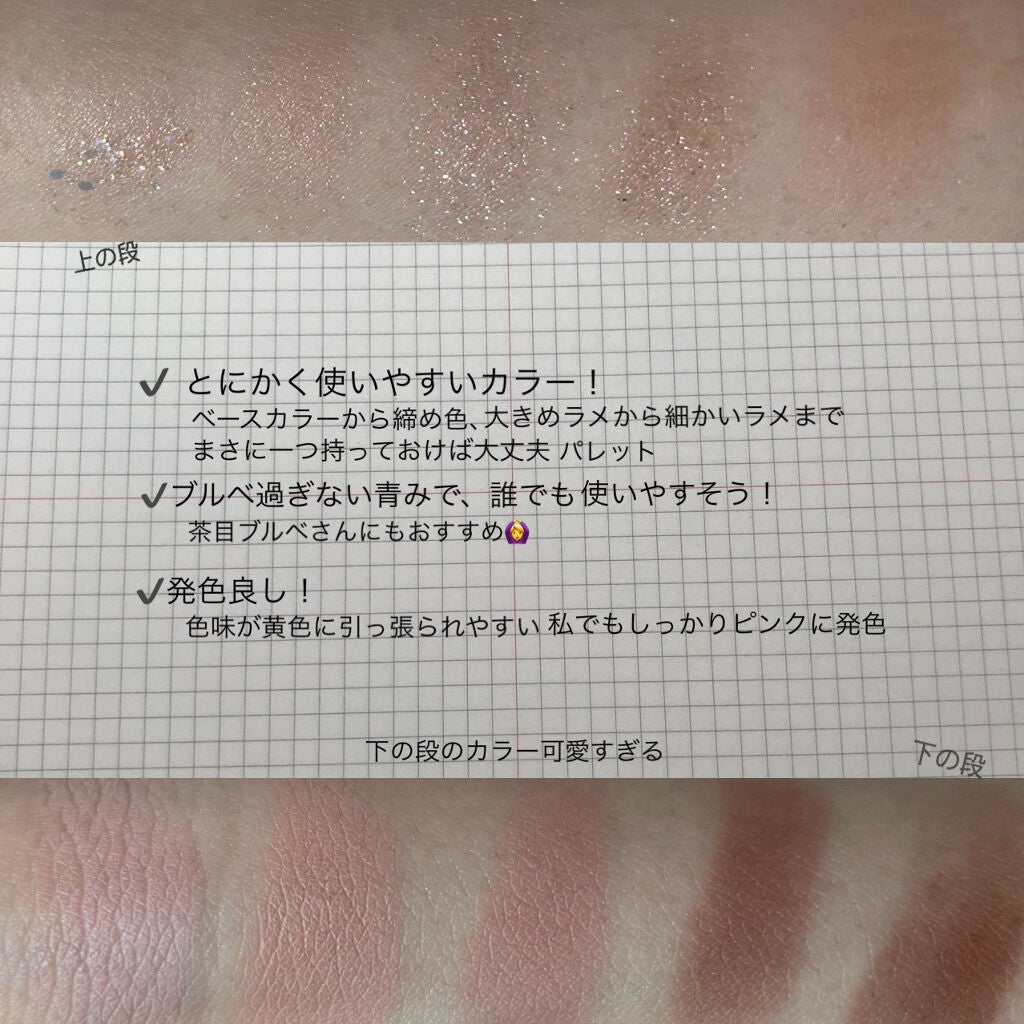 上の段
✔ とにかく使いやすいカラー！
ベースカラーから締め色、大きめラメから細かいラメまで
まさに一つ持っておけば大丈夫 パレット
✔ブルベ過ぎない青みで、誰でも使いやすそう！
茶目ブルベさんにもおすすめ🙆
✔発色良し！
色味が黄色に引っ張られやすい 私でもしっかりピンクに発色
下の段のカラー可愛すぎる
下の段